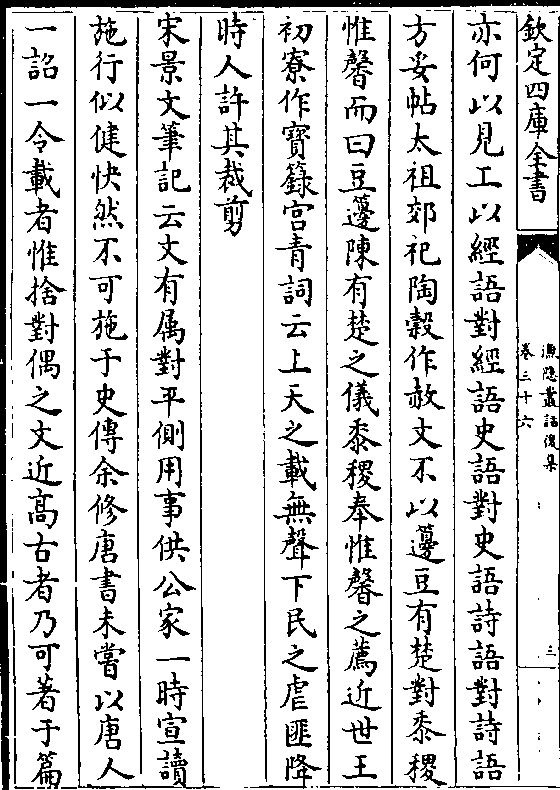 欽定四庫全書
漁隠叢話後集
卷三十六
三
亦何以見工以經語對經語史語對史語詩語對詩語
方妥帖太祖郊祀陶糓作赦文不以籩豆有楚對黍稷
惟馨而曰豆籩陳有楚之儀黍稷奉惟馨之薦近世王
初寮作寳籙宫青詞云上天之載無聲下民之虐匪降
時人許其裁剪
宋景文筆記云文有属對平側用事供公家一時宣讀
施行似健快然不可施于史傳余修唐書未嘗以唐人
一詔一令載者惟捨對偶之文近高古者乃可著于篇